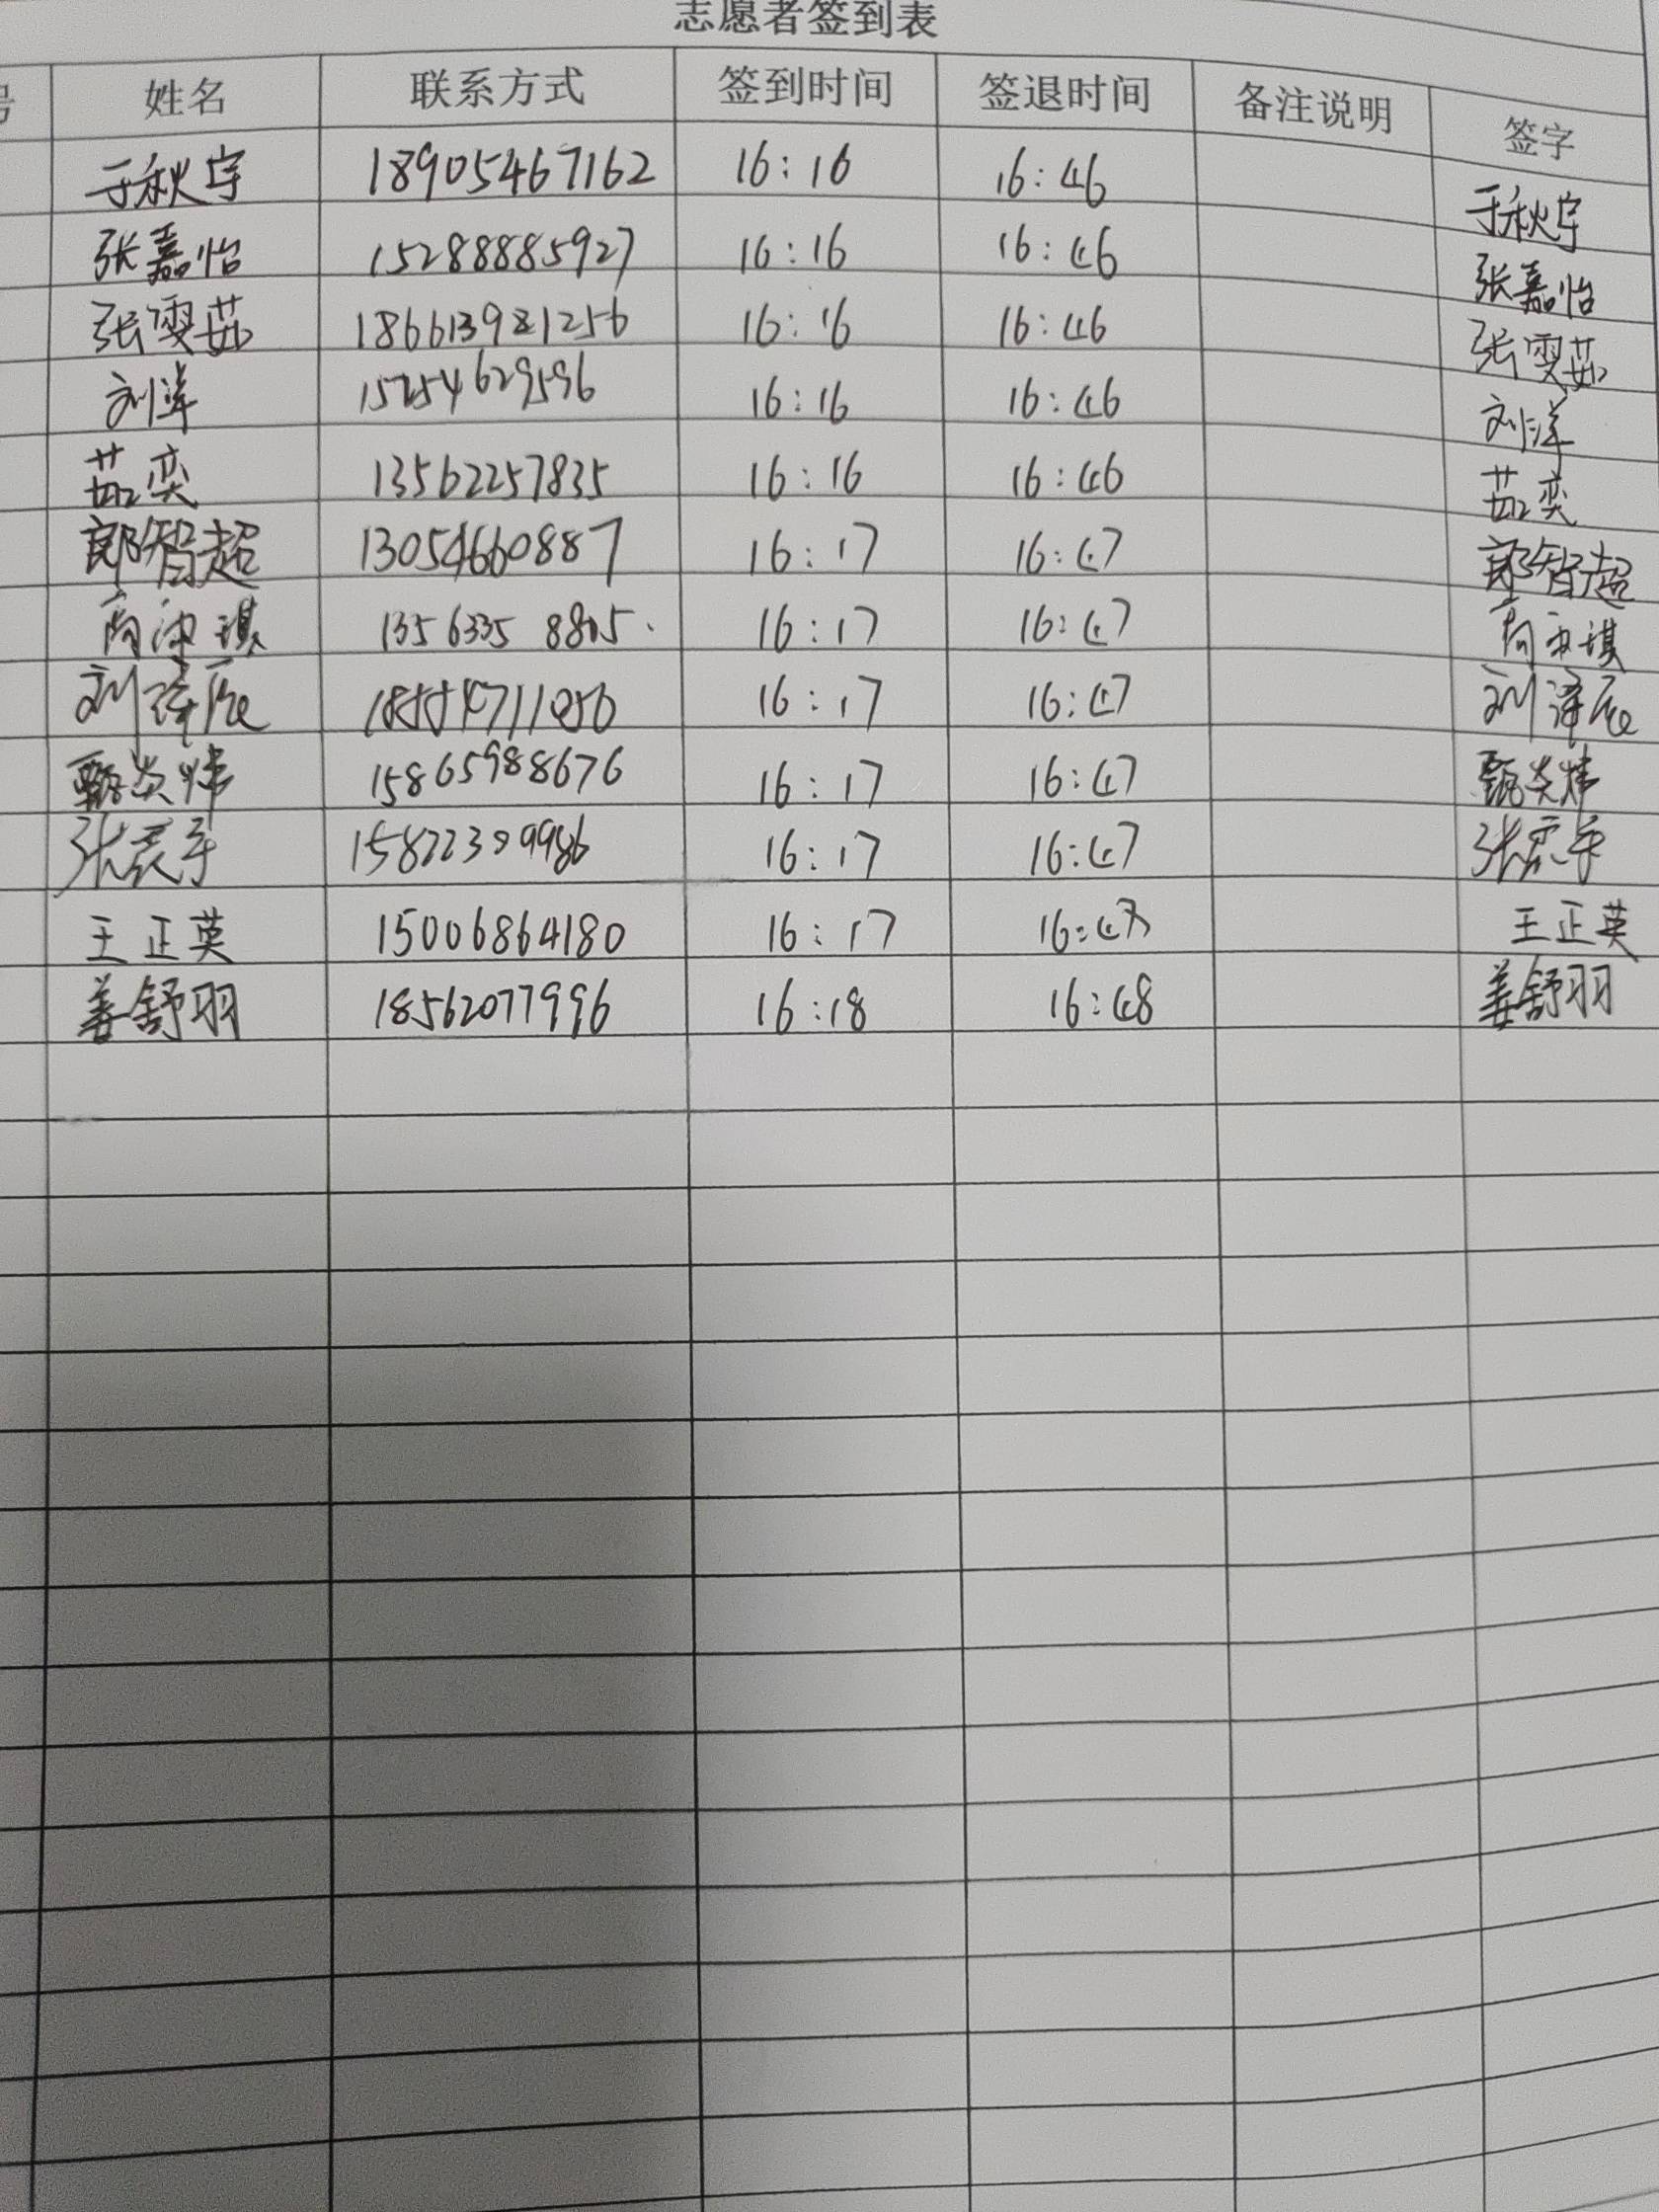 志愿者签到表
号 姓名 联系方式 签到时间 签退时间 备注说明 签字
于秋宇 18905467162 16:16 16:46 于秋宇
张嘉怡 15288885927 16:16 16:46 张嘉怡
张雯茹 16:16 16:46 张雯茹
刘洋 15254629596 16:16 16:46 刘洋
茹奕 13562257835 16:16 16:46 茹奕
郎智超 13054660887 16:17 16:47 郎智超
16:17 16:47
刘泽辰 16:17 16:47 刘泽辰
甄炎炜 15865988676 16:17 16:47 甄炎炜
16:17 16:47
王正英 15006864180 16:17 16:47 王正英
姜舒羽 18562077996 16:18 16:48 姜舒羽